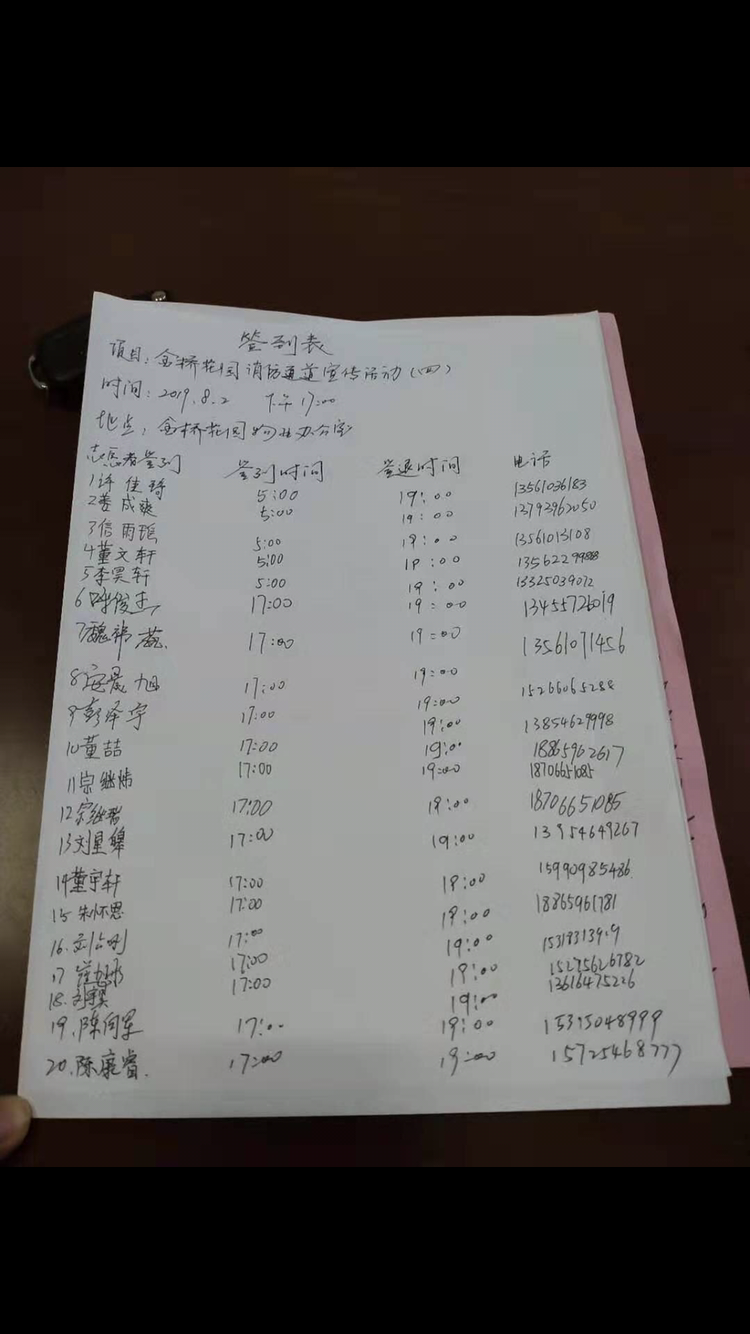 签到表
项目：金桥花园消防通道宣传活动（四）
时间：2019.8.2 下午17:00
地点：金桥花园物业办公室
志愿者签到 签到时间 签退时间 电话
1许佳琦 5:00 19:00 13561036183
2娄成爽 5:00 19:00 13793962050
3信雨瑶 5:00 19:00 13561013108
4董文轩 5:00 19:00 13562299888
5李昊轩 5:00 19:00 13325039012
6 俊 17:00 19:00 13455726019
7魏祎 17:00 19:00 13561071456
8 晨旭 17:00 19:00 15266065284
9彭泽宇 17:00 19:00 13854629998
10董喆 17:00 19:00 18865962617
11宗继炜 17:00 19:00 18706651085
12宗继 17:00 19:00 18706651085
13刘星 17:00 19:00 13954649267
14董宇轩 17:00 19:00 15990985486
15朱怀恩 17:00 19:00 18865961781
16.刘 17:00 19:00
17 17:00 19:00 15275626782
18.刘 17:00 19:00 13616475226
19.陈向军 17:00 19:00 15315048999
20.陈 睿. 17:00 19:00 15725468777